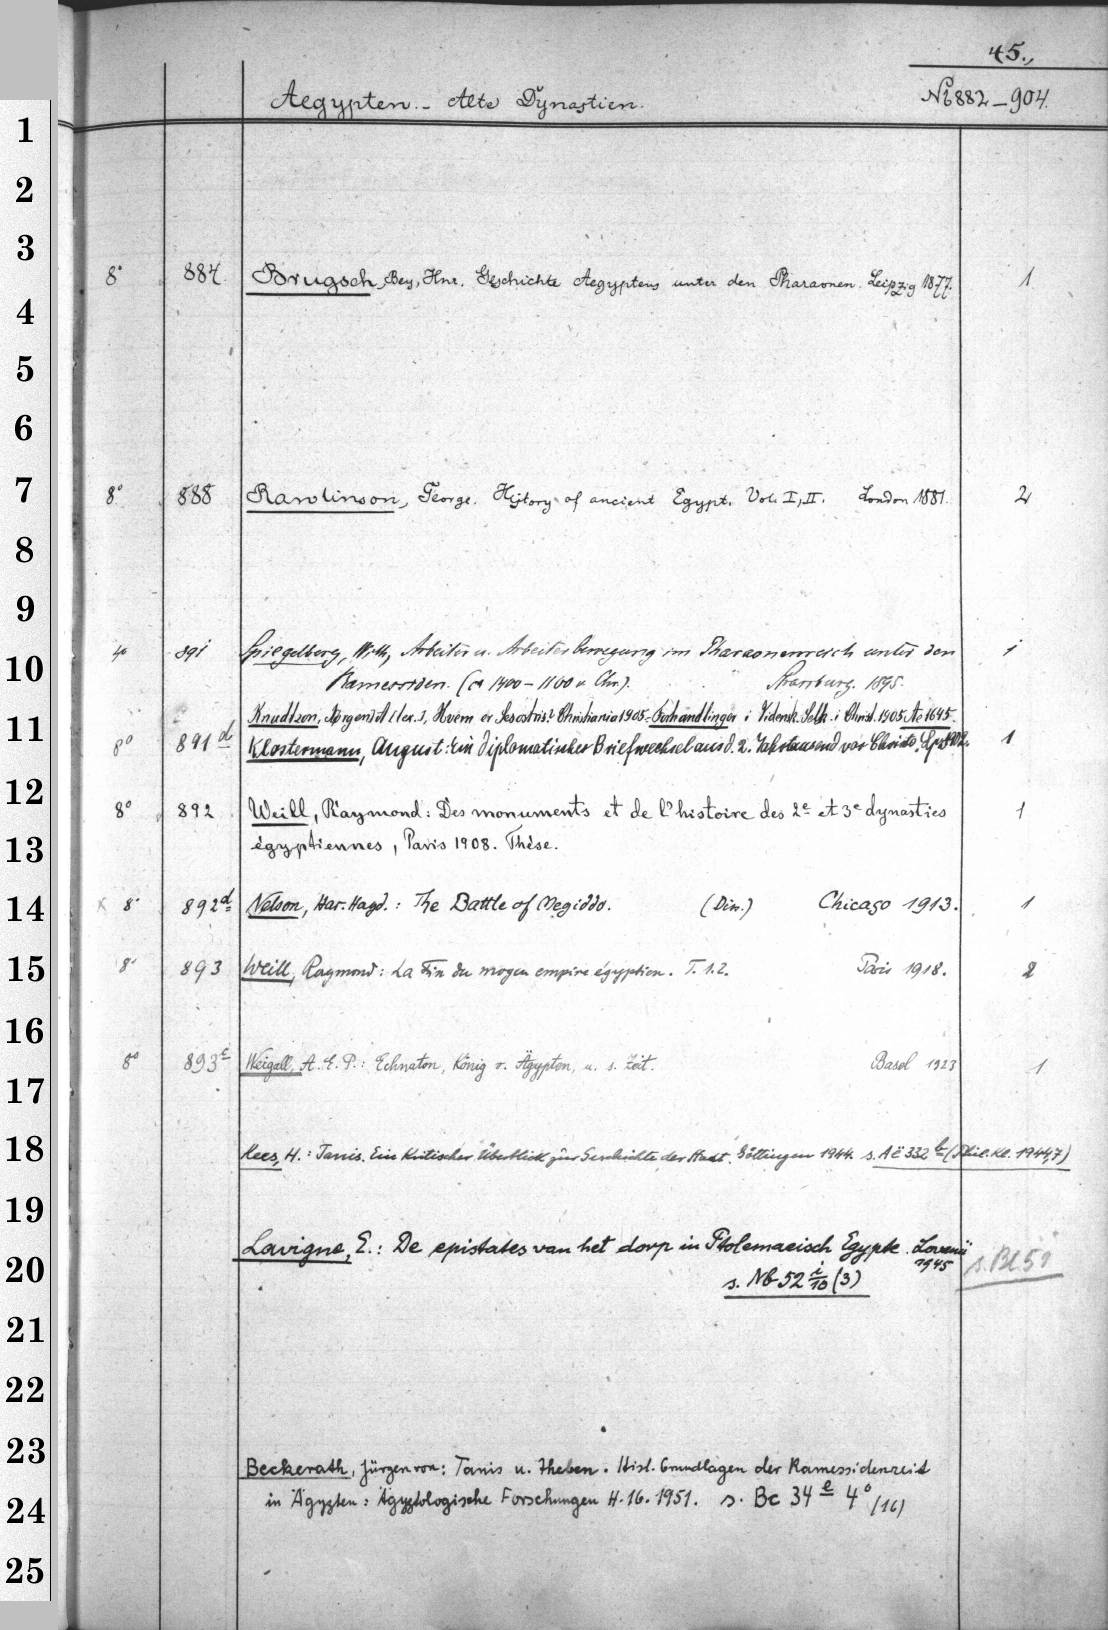 45.,
Aegypten. – Alte Dynastien. Nb 882–904.
1
2
3
8° 884 Brugsch, Bey, Hnr. Geschichte Aegyptens unter den Pharaonen. Leipzig 1877. 1
4
5
6
7
8° 888 Rawlinson, George. History of ancient Egypt. Vol. I, II. London 1881. 2
8
9
4° 891 Spiegelberg, Wilh., Arbeiter u. Arbeiterbewegung im Pharaonenreich unter den 1
10
Ramessiden. (ca 1400–1100 v. Chr.). Strassburg. 1895.
Knudtzon, Jörgen Alexr., Hvem er Sesostris? Christiania 1905. Forhandlinger i Vidensk. Selsk. i Christ. 1905 Ac 1645.
11
8° 891 d Klostermann, August: Ein diplomatischer Briefwechsel aus d. 2. Jahrtausend vor Christo. 1
12
8° 892 Weill, Raymond: Des monuments et de l'histoire des 2e et 3e dynasties 1
13
égyptiennes, Paris 1908. Thèse.
14
x 8° 892 d Nelson, Har. Hayd.: The Battle of Megiddo. (Diss.) Chicago 1913. 1
15
8° 893 Weill, Raymond: La Fin du moyen empire égyptien. T. 1.2. Paris 1918. 2
16
8° 893 e Weigall, A. E. P.: Echnaton, König v. Ägypten, u. s. Zeit. Basel 1923 1
17
18
Kees, H.: Tanis. Ein kritischer Überblick zur Geschichte der Stadt. Göttingen 1944. s. Aë 332 b (Phil. Kl. 1944,7)
19
Lavigne, E.: De epistates van het dorp in Ptolemaeisch Egypte. Lovanii
1945
20
s. Nb 52 i/10 (3) s. Bl 51
21
22
23
Beckerath, Jürgen von: Tanis u. Theben. Hist. Grundlagen der Ramessidenzeit
24
in Ägypten: Ägyptologische Forschungen H. 16. 1951. s. Bc 34 e 4° /(16)
25